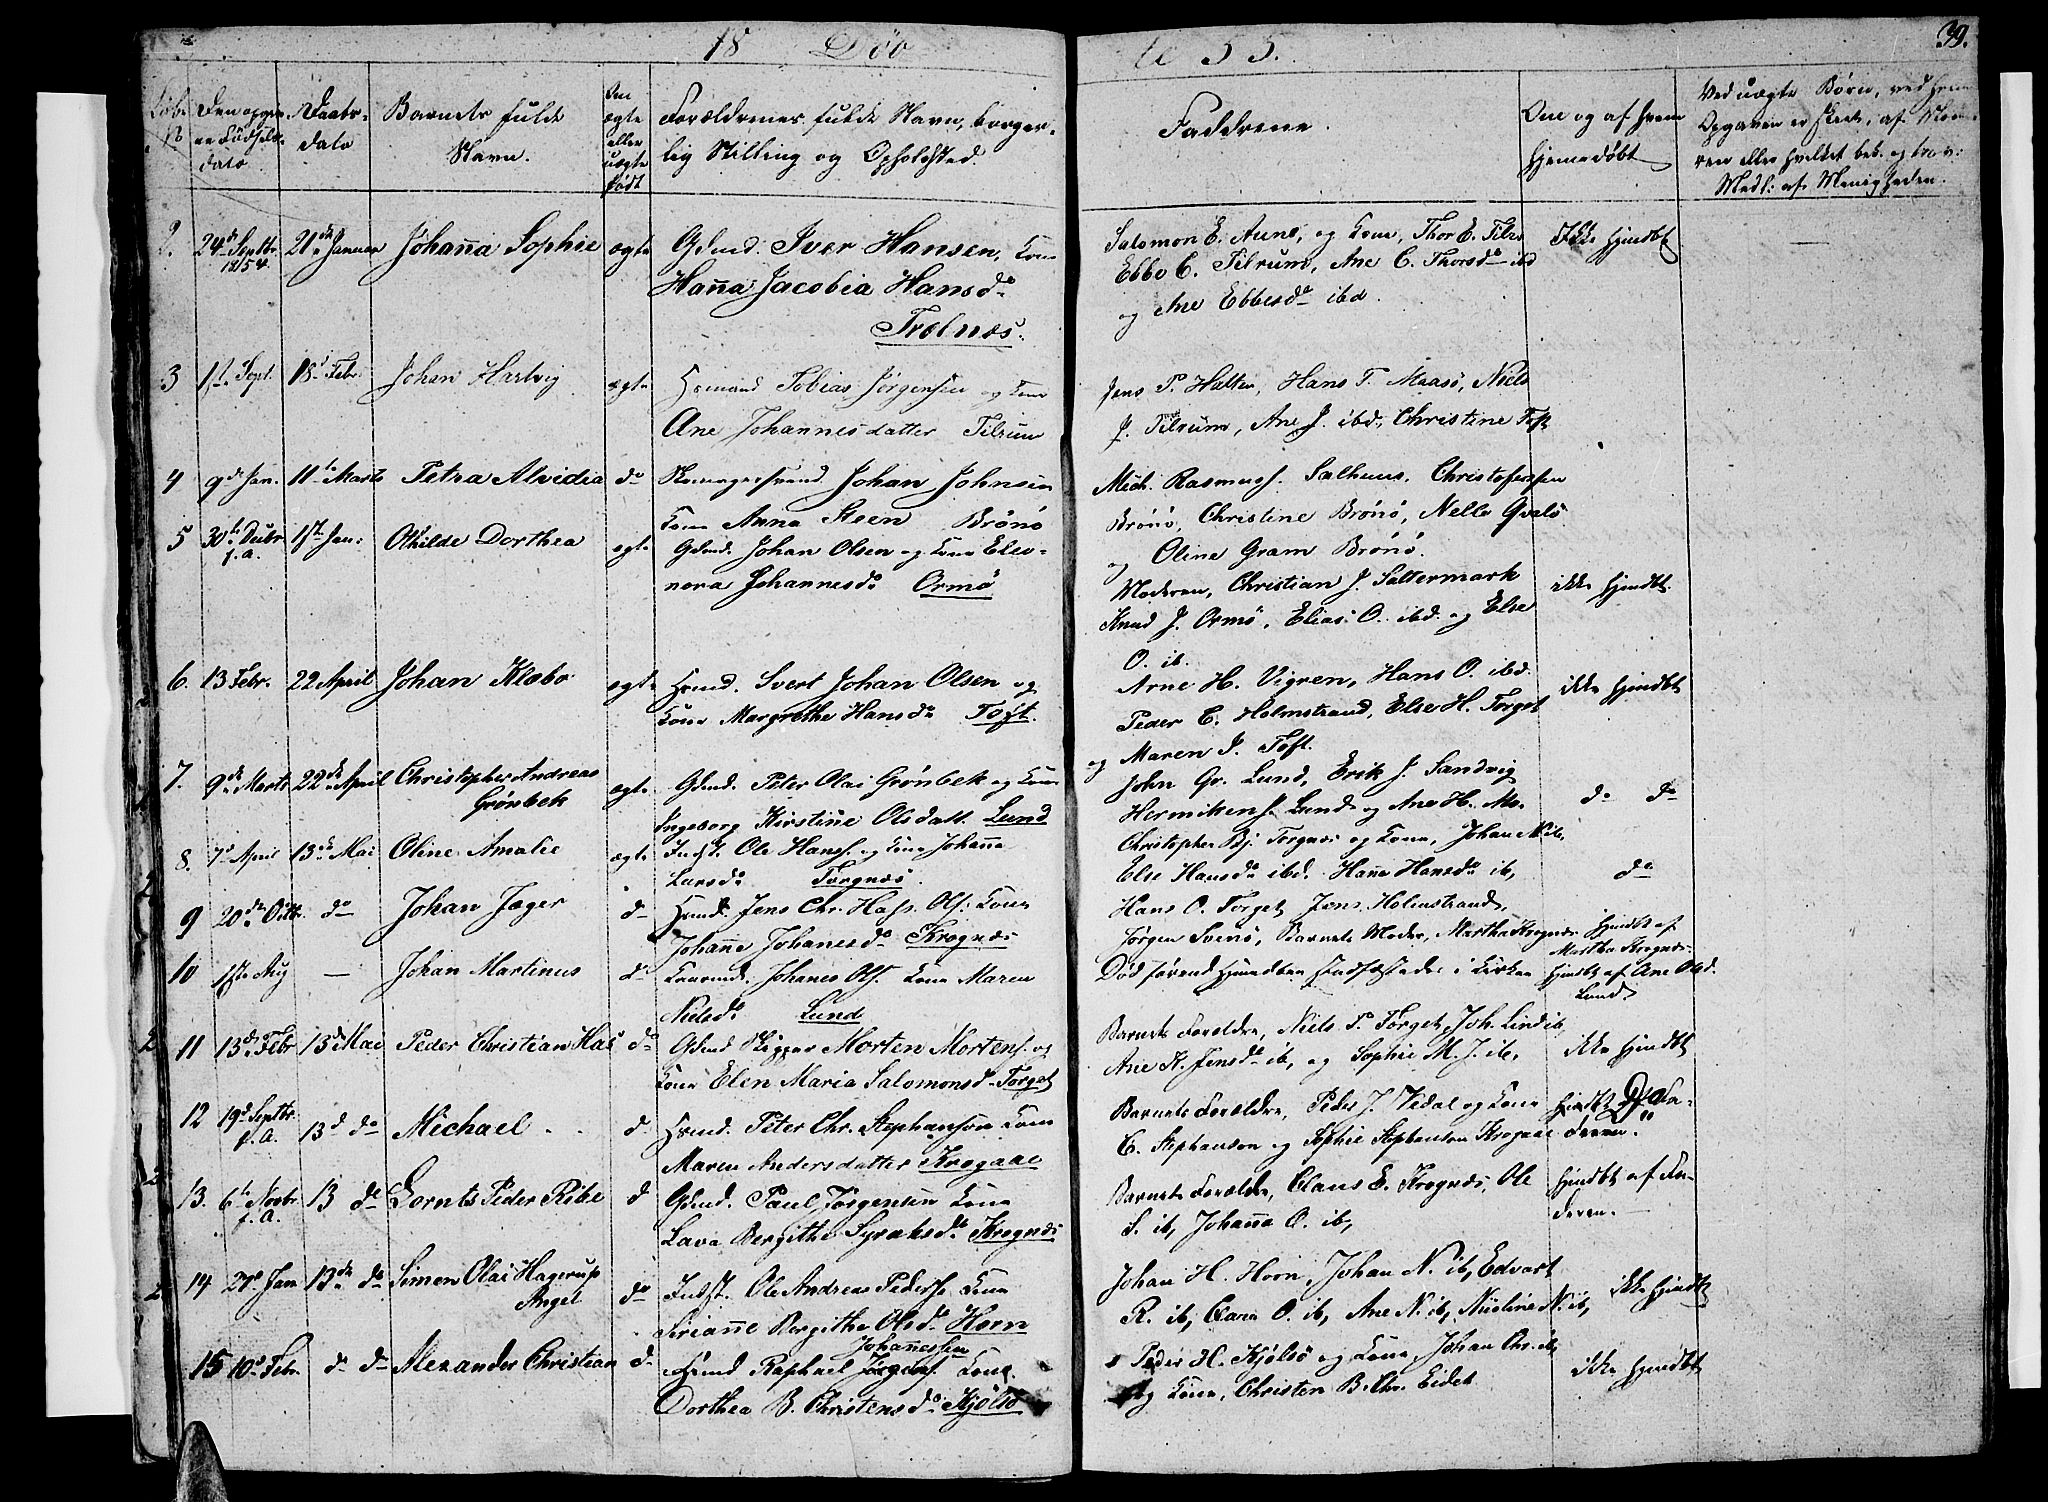 18 Døb
te 55.
39.
Løbe
No
Den opgiv-
ne Fødsels-
dato
Daabs-
dato
Barnets fulde
Navn.
Om
ægte
eller
uægte
født
Forældrenes fulde Navn, borger-
lig Stilling og Opholdssted.
Faddrene.
Om og af hvem
hjemmedøbt
Ved uægte Børn, ved hvem
Opgaven er skeet, af Mode-
ren eller hvilket bek. og trov:
Medl: af Menigheden.
2. 24de Septbr. 1854 21de Januar Johan̄a Sophie ægte Gdmd. Iver Hansen, Kone
Han̄a Jacobia Hansdr
Trælnæs.
Salomon E. Aune, og Kone, Thor E. Tilr.
Ebbe C. Tilrum, Ane C. Thorsdr ibd
og Ane Ebbesdr ibd.
Ikke hjmdbt
3 1ste Sept. 18de Febr. Johan Hartvig ægte Hsmand Tobias Jørgensen og Kone
Ane Johannesdatter Tilrum
Jens P. Halten, Hans T. Maasø, Niels
J. Tilrum, Ane J. ibd., Christine Toft
4 9de Jan. 11te Marts Petra Alvidia do Johan Johnsen
Kone Anna Steen Brønø
Mich. Rasmuss. Salhuus, Christofersen
Brønø, Christine Brønø, Nelle Qvalø
og Oline Gram Brønø.
5 30te Decbr. f. a. 1ste Jan: Othilde Dorthea ægte Gdmd. Johan Olsen og Kone Eleo-
nora Johannesdr Ormø
Moderen, Christian J. Saltermark
Knud J. Ormø, Elias O. ibd. og Else
O. ib.
ikke hjmdbt
6. 13 Febr. 22 April Johan Klæbo ægte Hsmd. Sivert Johan Olsen og
Kone Margrethe Hansdr Toft.
Arne H. Vigren, Hans O. ibd.
Peder C. Holmstrand, Else H. Torget
og Maren J. Toft.
ikke hjmdbt
7. 9de Marts 22de April Christopher Andreas
Grønbek ægte Gdmd. Peter Olai Grønbek og Kone
Ingeborg Kirstin̄e Olsdatt. Lund
John Gr. Lund, Erik J. Sandvig
Henriksen Lund og Ane H. Mo.
do do
8. 7de April 13de Mai Oline Amalie ægte Indst. Ole Hanss. og Kone Johan̄a
Larsdr Torgnæs.
Christopher Bj. Torgnæs og Kone, Johan N. ib,
Else Hansdr ibd. Han̄a Hansdr ib,
do
9 20de Octbr. do Johan Jæger do Hsmd. Jens Chr. Hass Ols. Kone
Johan̄e Johanesdr Krognæs
Hans O. Torget, Jens Holmstrand,
Jørgen Svenø, Barnets Moder, Martha Krognæs
hjmdbt af
Martha Krognæs.
10 1ste Aug — Johan Martinus do Johanes Ols. Kone Maren
Nielsdr Lund
Død førend hjmdben stadfæstedes i Kirken
hjmdbt af Ane Olsd.
Lund
11 13de Febr 13de Mai Peder Christian Has do Gdmd Skipper Morten Mortens. og
Kone Elen Maria Salomonsd. Torget
Barnets Forældre, Niels P. Torget, Joh. Lind ib,
Ane K. Jensdr ib, og Sophie M. J. ib,
ikke hjmdbt
12 19de Septbr. f. A. 13de do Michael do Hsmd. Peter Chr. Stephansen Kone
Maren Andersdatter Krogaae
Barnets Forældre, Peder J. Vedal og Kone
C. Stephansen og Sophie Stephansen Krogaae
hjmdbt af Fa-
deren.
13. 6te Novbr. f. A. 13 do Lornts Peder Ribe do Gdmd. Paul Jørgensen Kone
Lava Bergithe Syraksdr Krognæs
Barnets Forældre, Claus E. Krognæs, Ole
S. ib, Johan̄a O. ib,
hjmdbt af Fa-
deren.
14 27de Jan 13de do Simen Olai Hagerup
Angel do Indst. Ole Andreas Peders. Kone
Serian̄e Bergitha Olsdr Horn
Johan H. Horn, Johan N. ib, Edvart
R. ib, Clara O. ib, Ane N. ib, N. ib,
ikke hjmdbt
15 10de Febr. do do Alexander Christian do Hsmd Raphael Jørgens. Johan̄essen Kone
Dorthea B. Christensdr Kjølsø
Peder H. Kjølsø og Kone, Johan Chr. ib,
og Kone, Christen B. Chr. Eidet
ikke hjmdbt